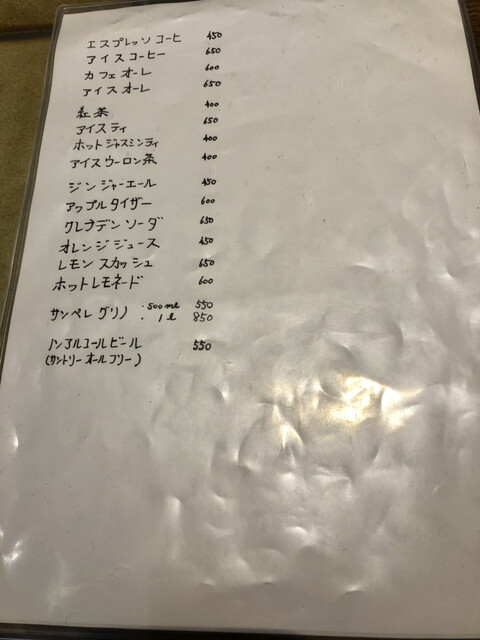 エスプレッソコーヒ 450
アイスコーヒー 650
カフェオーレ 600
アイスオーレ 650
紅茶 400
アイスティ 650
ホットジャスミンティ 400
アイスウーロン茶 400
ジンジャーエール 450
アップルタイザー 600
クレナデンソーダ 650
オレンジジュース 450
レモンスカッシュ 650
ホットレモネード 600
サンペレグリノ .500ml 550
. 1l 850
ノンアルコールビール 550
(サントリーオールフリー)